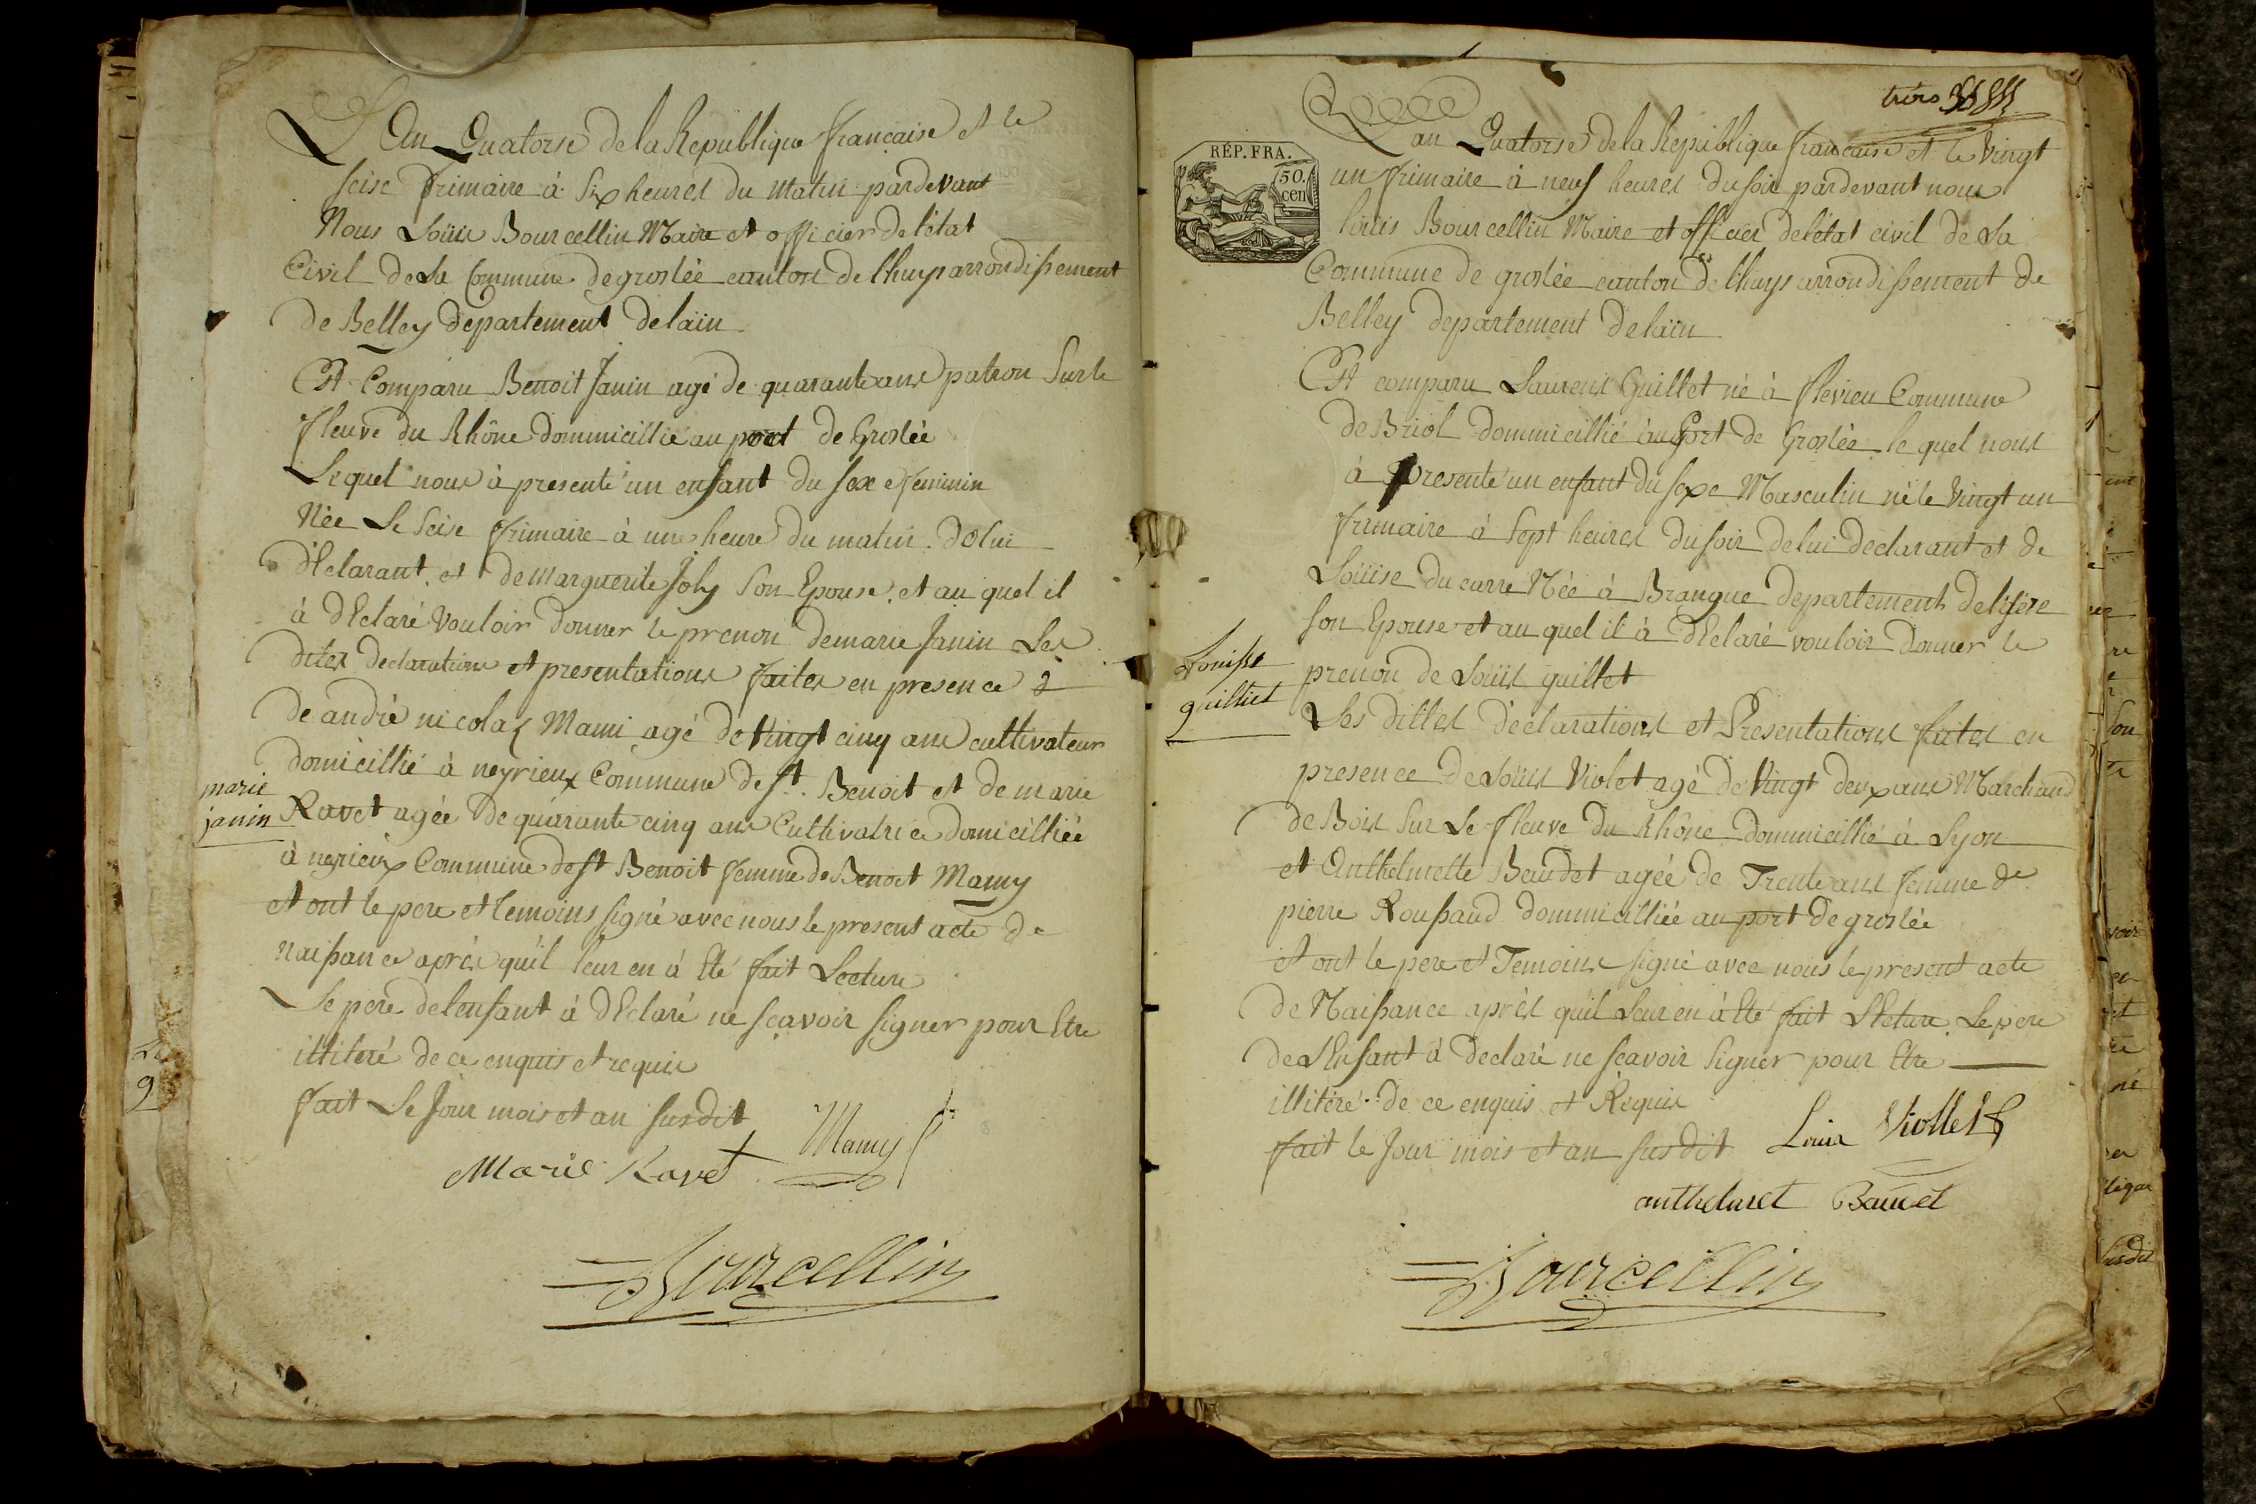 L'An Quatorse de la Republique francaise et le
seise frimaire à Six heures du matin pardevant
Nous Loüis Bourcellin Maire et officier de l'état
Civil de La Commune de groslée canton de lhuys arrondissement
de Belley departement de lain
Est Comparu Benoit Janin agé de quarante ans patron Sur le
fleuve du Rhône dommicillié au port de Groslée
Lequel nous à presenté un enfant du sexe feminin
Née Le Seise frimaire à une heure du matin de lui
déclarant et de Marguerite Joly Son Epouse et au quel il
à déclaré vouloir donner le prenon de marie Janin Les
dites declarations et presentations faites en presence
de andré nicolas Mami agé de vingt cinq ans cultivateur
domicillié à neyrieux Commune de st. Benoit et de marie
Ravet agée de quarante cinq ans Cultivatrice domicilliée
à neyrieux Commune de st Benoit femme de Benoit Mamy
et ont le pere et temoins signé avec nous le present acte de
naissance après qu'il leur en à été fait Lecture
Le pere de lenfant à déclaré ne sçavoir signer pour Etre
illiteré de ce enquis et requis
fait Le Jour mois et an susdit
Mamy
Marie Ravet
Bourcellin
marie
janin
9
trois
Lan Quatorse de la Republique francaise et le vingt
un frimaire à neuf heures du soir pardevant nous
loüis Bourcellin Maire et officier de létat civil de La
Commune de groslée canton de lhuys arrondissement de
Belley departement de lain
RÉP. FRA.
50.
cen
Est comparu Laurent Guillet né à flevieu Commune
de Briol dommicillié au Port de Groslée le quel nous
à Presenté un enfant du sexe Masculin né le vingt un
frimaire à Sept heures du soir de lui declarant et de
Loüise ducarre Née à Brangue departement de lisère
son Epouse et au quel il à déclaré vouloir donner le
prenon de Loüis guillet
Les dittes déclarations et Presentations faites en
presence de Loüis Violet agé de Vingt deux ans Marchand
de Bois Sur Le fleuve du Rhône dommicillié à Lyon
et Anthelmette Beaudet agée de Trente ans femme de
pierre Roussaud dommicilliée au port de groslée
et ont le pere et Temoins signé avec nous le present acte
de Naissance après qu'il Leur en à été fait Lecture Le pere
de LEnfant à declaré ne sçavoir signer pour Etre
illiteré de ce enquis et Requis
fait le Jour mois et an susdit
Louis Viollet
Bourcellin
Louisse
guilliet